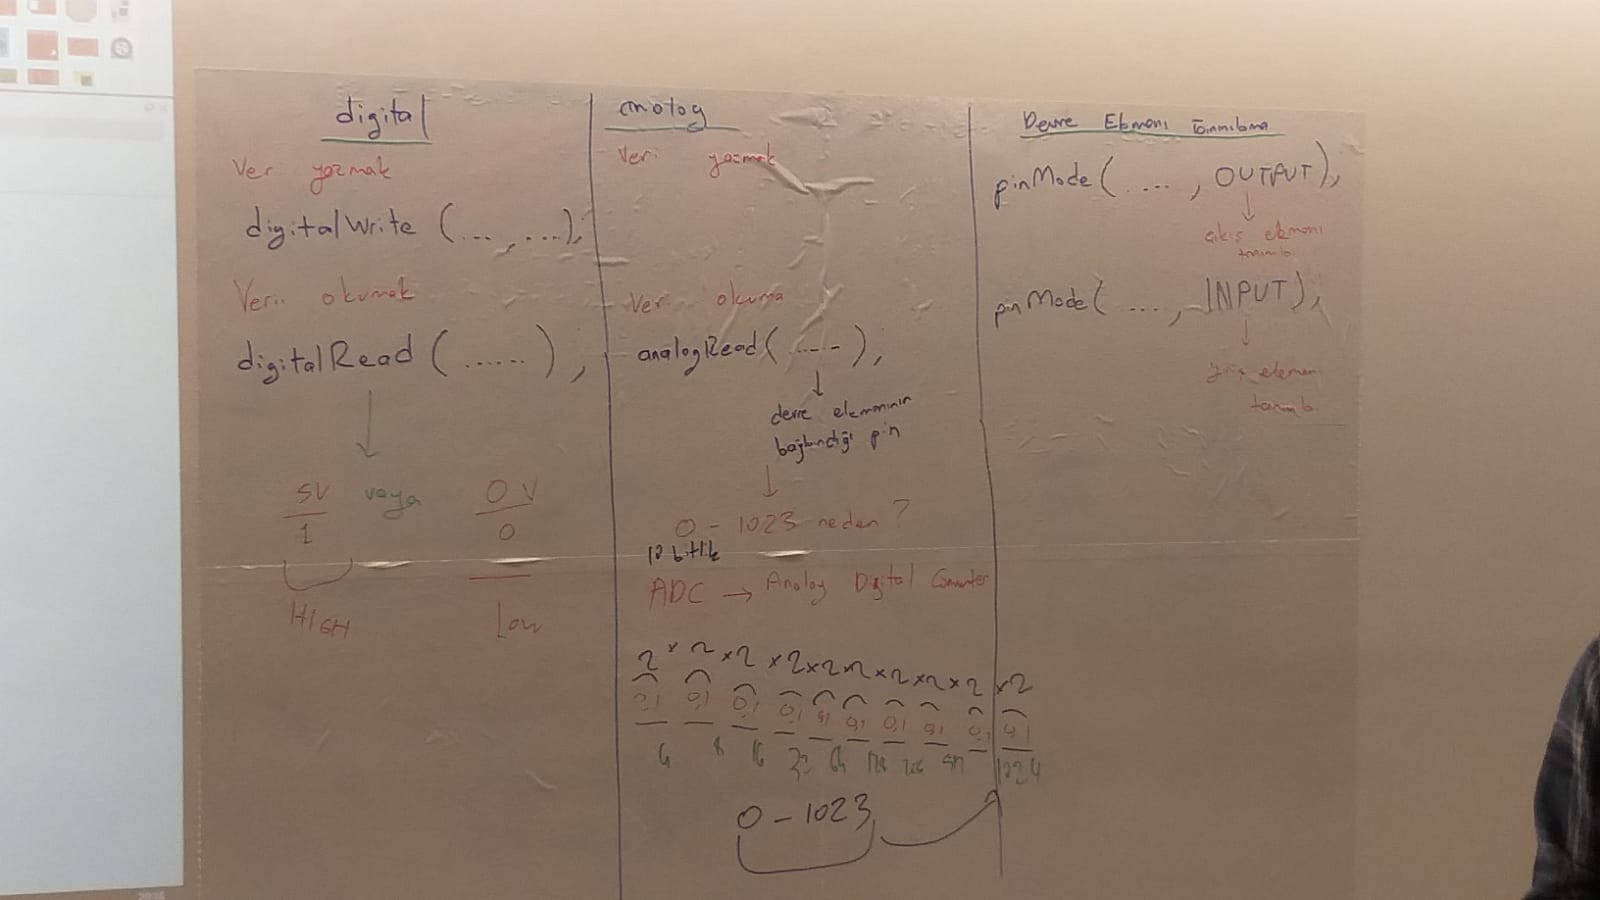 digital
Veri yazmak
digitalWrite (... , ....);
Veri okumak
digitalRead (......) ;
5V veya 0 V
1 0
HIGH Low
analog
Veri yazmak
Veri okuma
analogRead (.....) ;
devre elemanının
bağlandığı pin
0 - 1023 neden ?
10 bitlik
ADC → Analog Digital Converter
2 x 2 x 2 x 2 x 2 x 2 x 2 x 2 x 2 x 2
0,1 0,1 0,1 0,1 0,1 0,1 0,1 0,1 0,1 0,1
4 8 16 32 64 128 256 512 1024
0 - 1023
Devre Elemanı Tanımlama
pinMode (.... , OUTPUT);
çıkış elemanı
tanımla
pinMode (.... , INPUT);
giriş eleman
tanımla